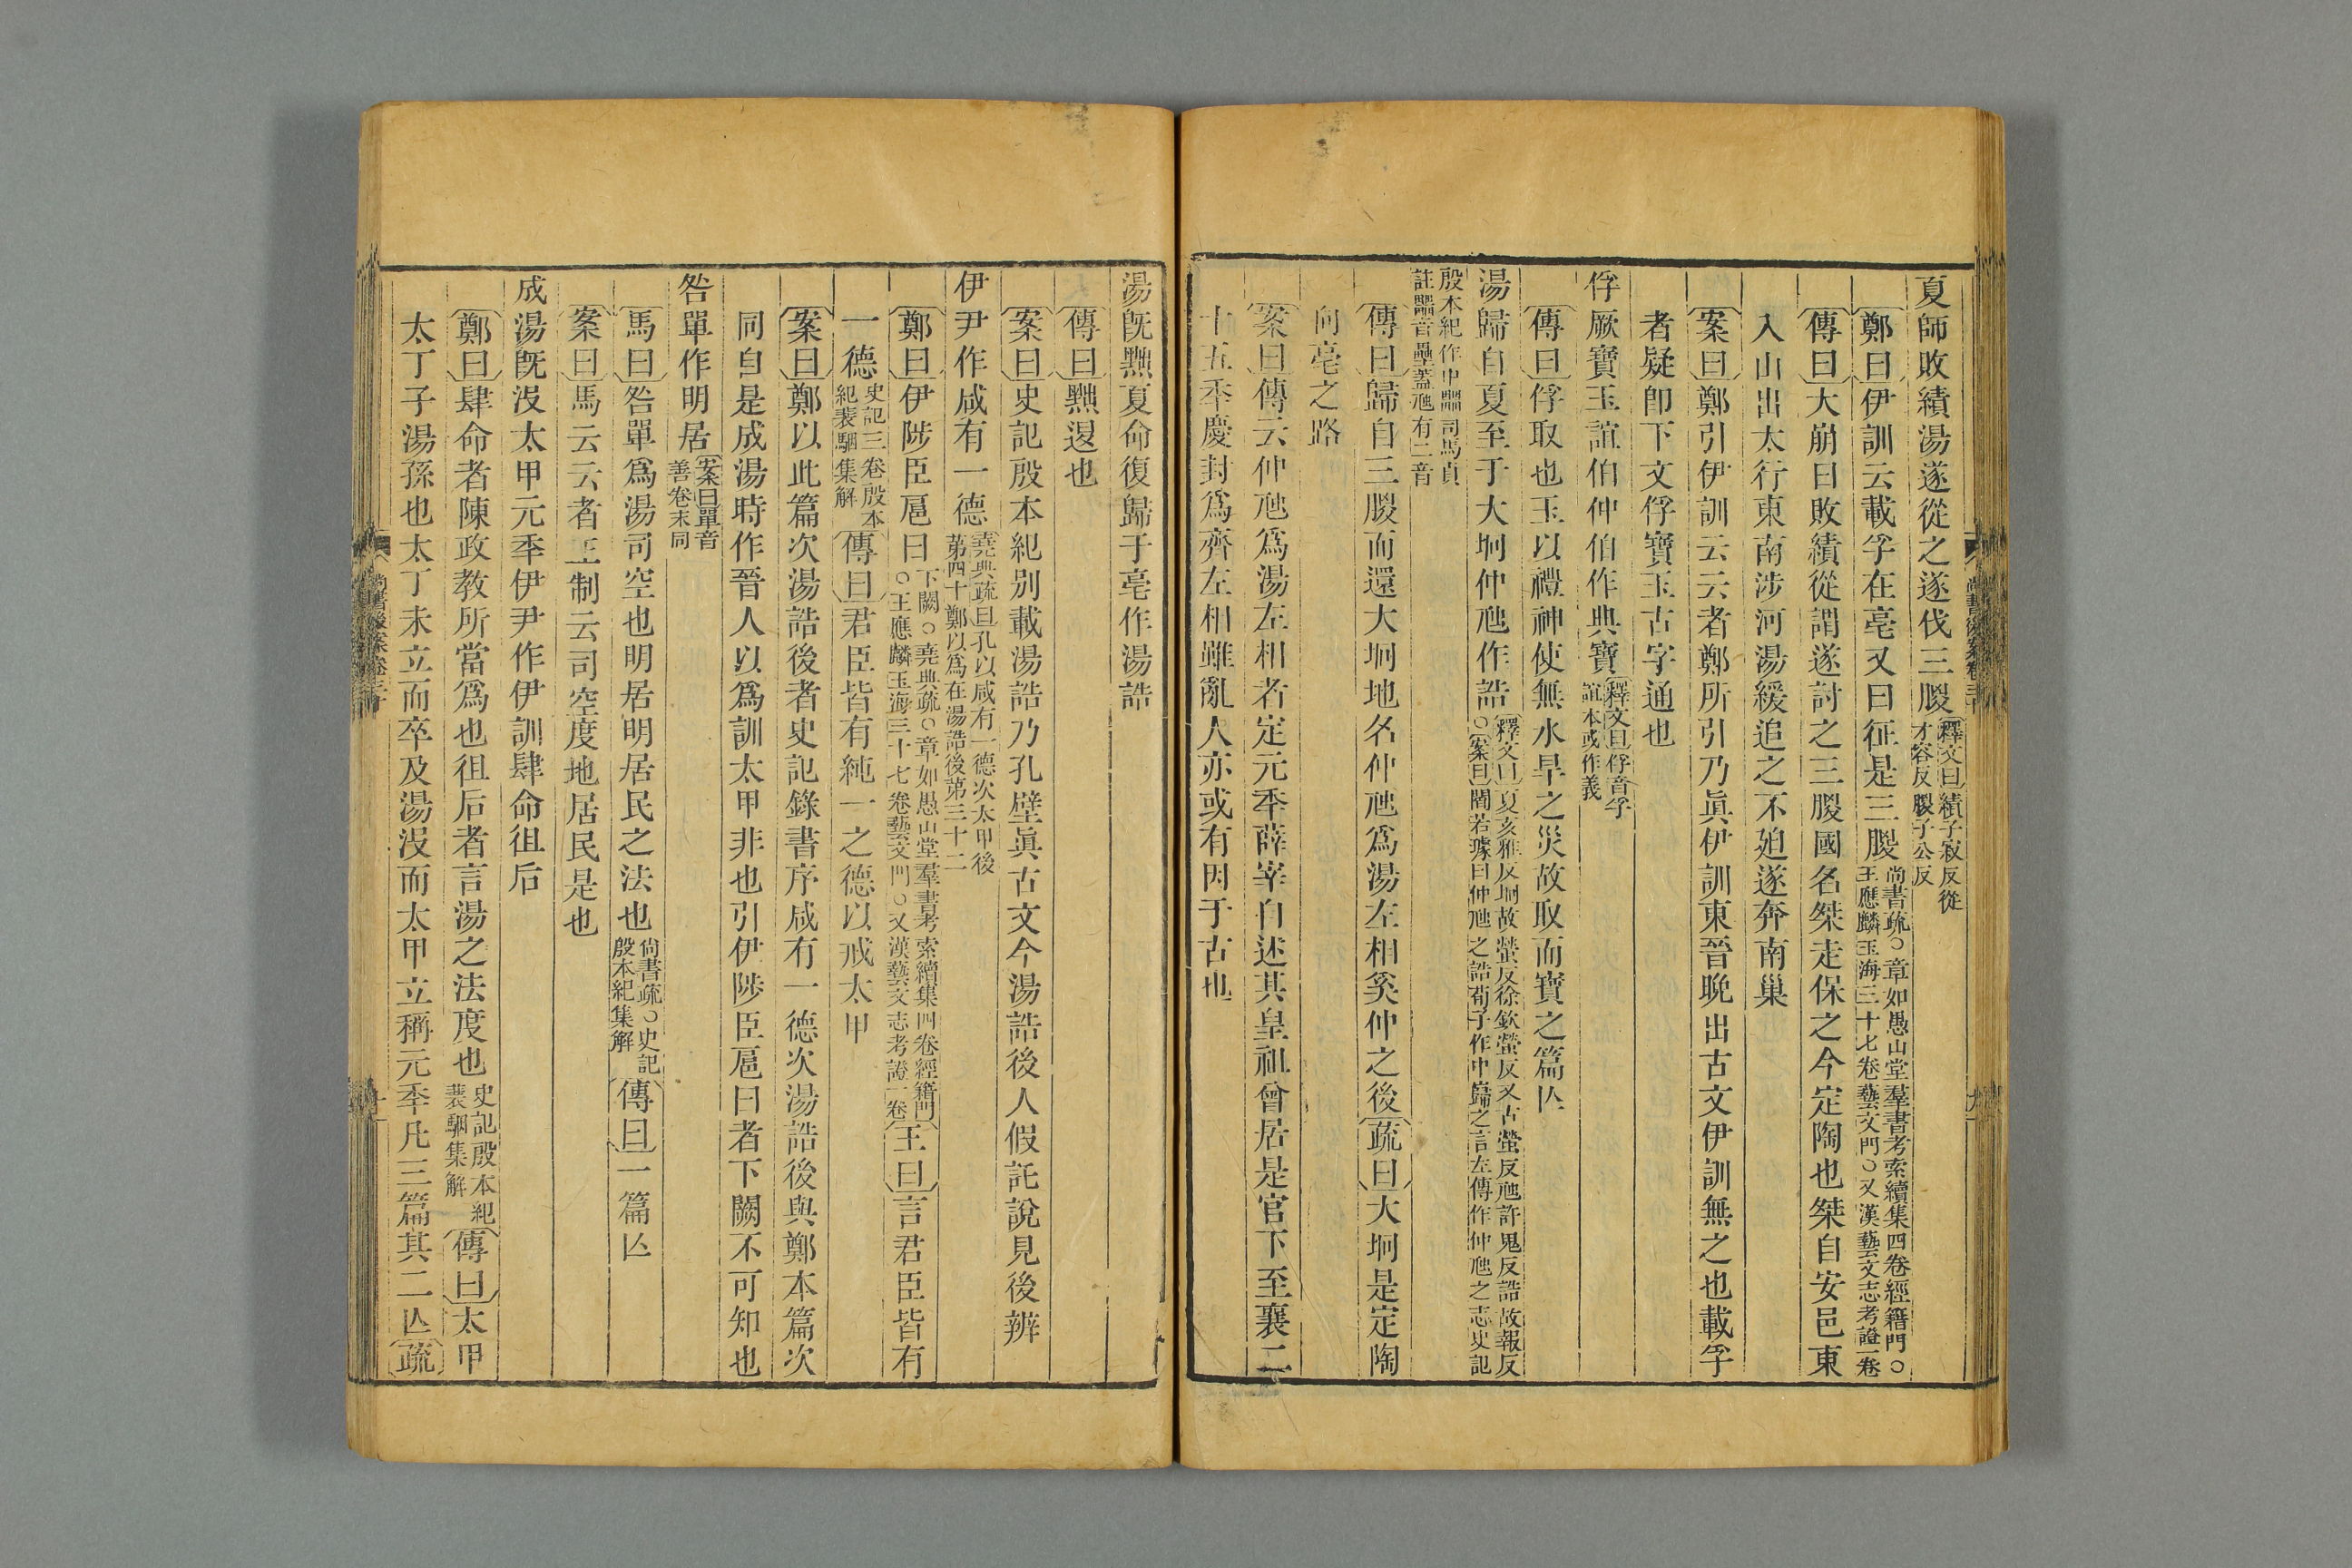 夏師敗績湯遂從之遂伐三朡釋文曰績子寂反從才容反朡子公反
鄭曰伊訓云載孚在亳又曰征是三朡尚書疏○章如愚山堂羣書考索續集四卷經籍門○王應麟玉海三十七卷藝文門○又漢藝文志考證一卷
傳曰大崩曰敗績從謂遂討之三朡國名桀走保之今定陶也桀自安邑東
入山出太行東南涉河湯緩追之不廹遂奔南巢
案曰鄭引伊訓云云者鄭所引乃眞伊訓東晉晚出古文伊訓無之也載孚
者疑卽下文俘寶玉古字通也
俘厥寶玉誼伯仲伯作典寶釋文曰俘音孚誼本或作義
傳曰俘取也玉以禮神使無水旱之災故取而寶之篇亾
湯歸自夏至于大坰仲虺作誥釋文曰夏亥雅反坰故螢反徐欽螢反又古螢反虺許鬼反誥故報反○案曰閻若璩曰仲虺之誥荀子作中蘬之言左傳作仲虺之志史記
殷本紀作中𤳹司馬貞註𤳹音壘蓋虺有二音
傳曰歸自三朡而還大坰地名仲虺爲湯左相奚仲之後疏曰大坰是定陶
向亳之路
案曰傳云仲虺爲湯左相者定元秊薛宰自述其皇祖曾居是官下至襄二
十五秊慶封爲齊左相雖亂人亦或有因于古也
尚書後案卷三十
九
湯旣黜夏命復歸于亳作湯誥
傳曰黜退也
案曰史記殷本紀別載湯誥乃孔壁眞古文今湯誥後人假託說見後辨
伊尹作咸有一德堯典疏曰孔以咸有一德次太甲後第四十鄭以爲在湯誥後第三十二
鄭曰伊陟臣扈曰下闕○堯典疏○章如愚山堂羣書考索續集四卷經籍門○王應麟玉海三十七卷藝文門○又漢藝文志考證一卷王曰言君臣皆有
一德史記三卷殷本紀裴駰集解傳曰君臣皆有純一之德以戒太甲
案曰鄭以此篇次湯誥後者史記錄書序咸有一德次湯誥後與鄭本篇次
同自是成湯時作晉人以爲訓太甲非也引伊陟臣扈曰者下闕不可知也
咎單作明居案曰單音善卷末同
馬曰咎單爲湯司空也明居明居民之法也尚書疏○史記殷本紀集解傳曰一篇亾
案曰馬云云者王制云司空度地居民是也
成湯旣沒太甲元秊伊尹作伊訓肆命徂后
鄭曰肆命者陳政教所當爲也徂后者言湯之法度也史記殷本紀裴駰集解傳曰太甲
太丁子湯孫也太丁未立而卒及湯沒而太甲立稱元秊凡三篇其二亾疏
尚書後案卷三十
十